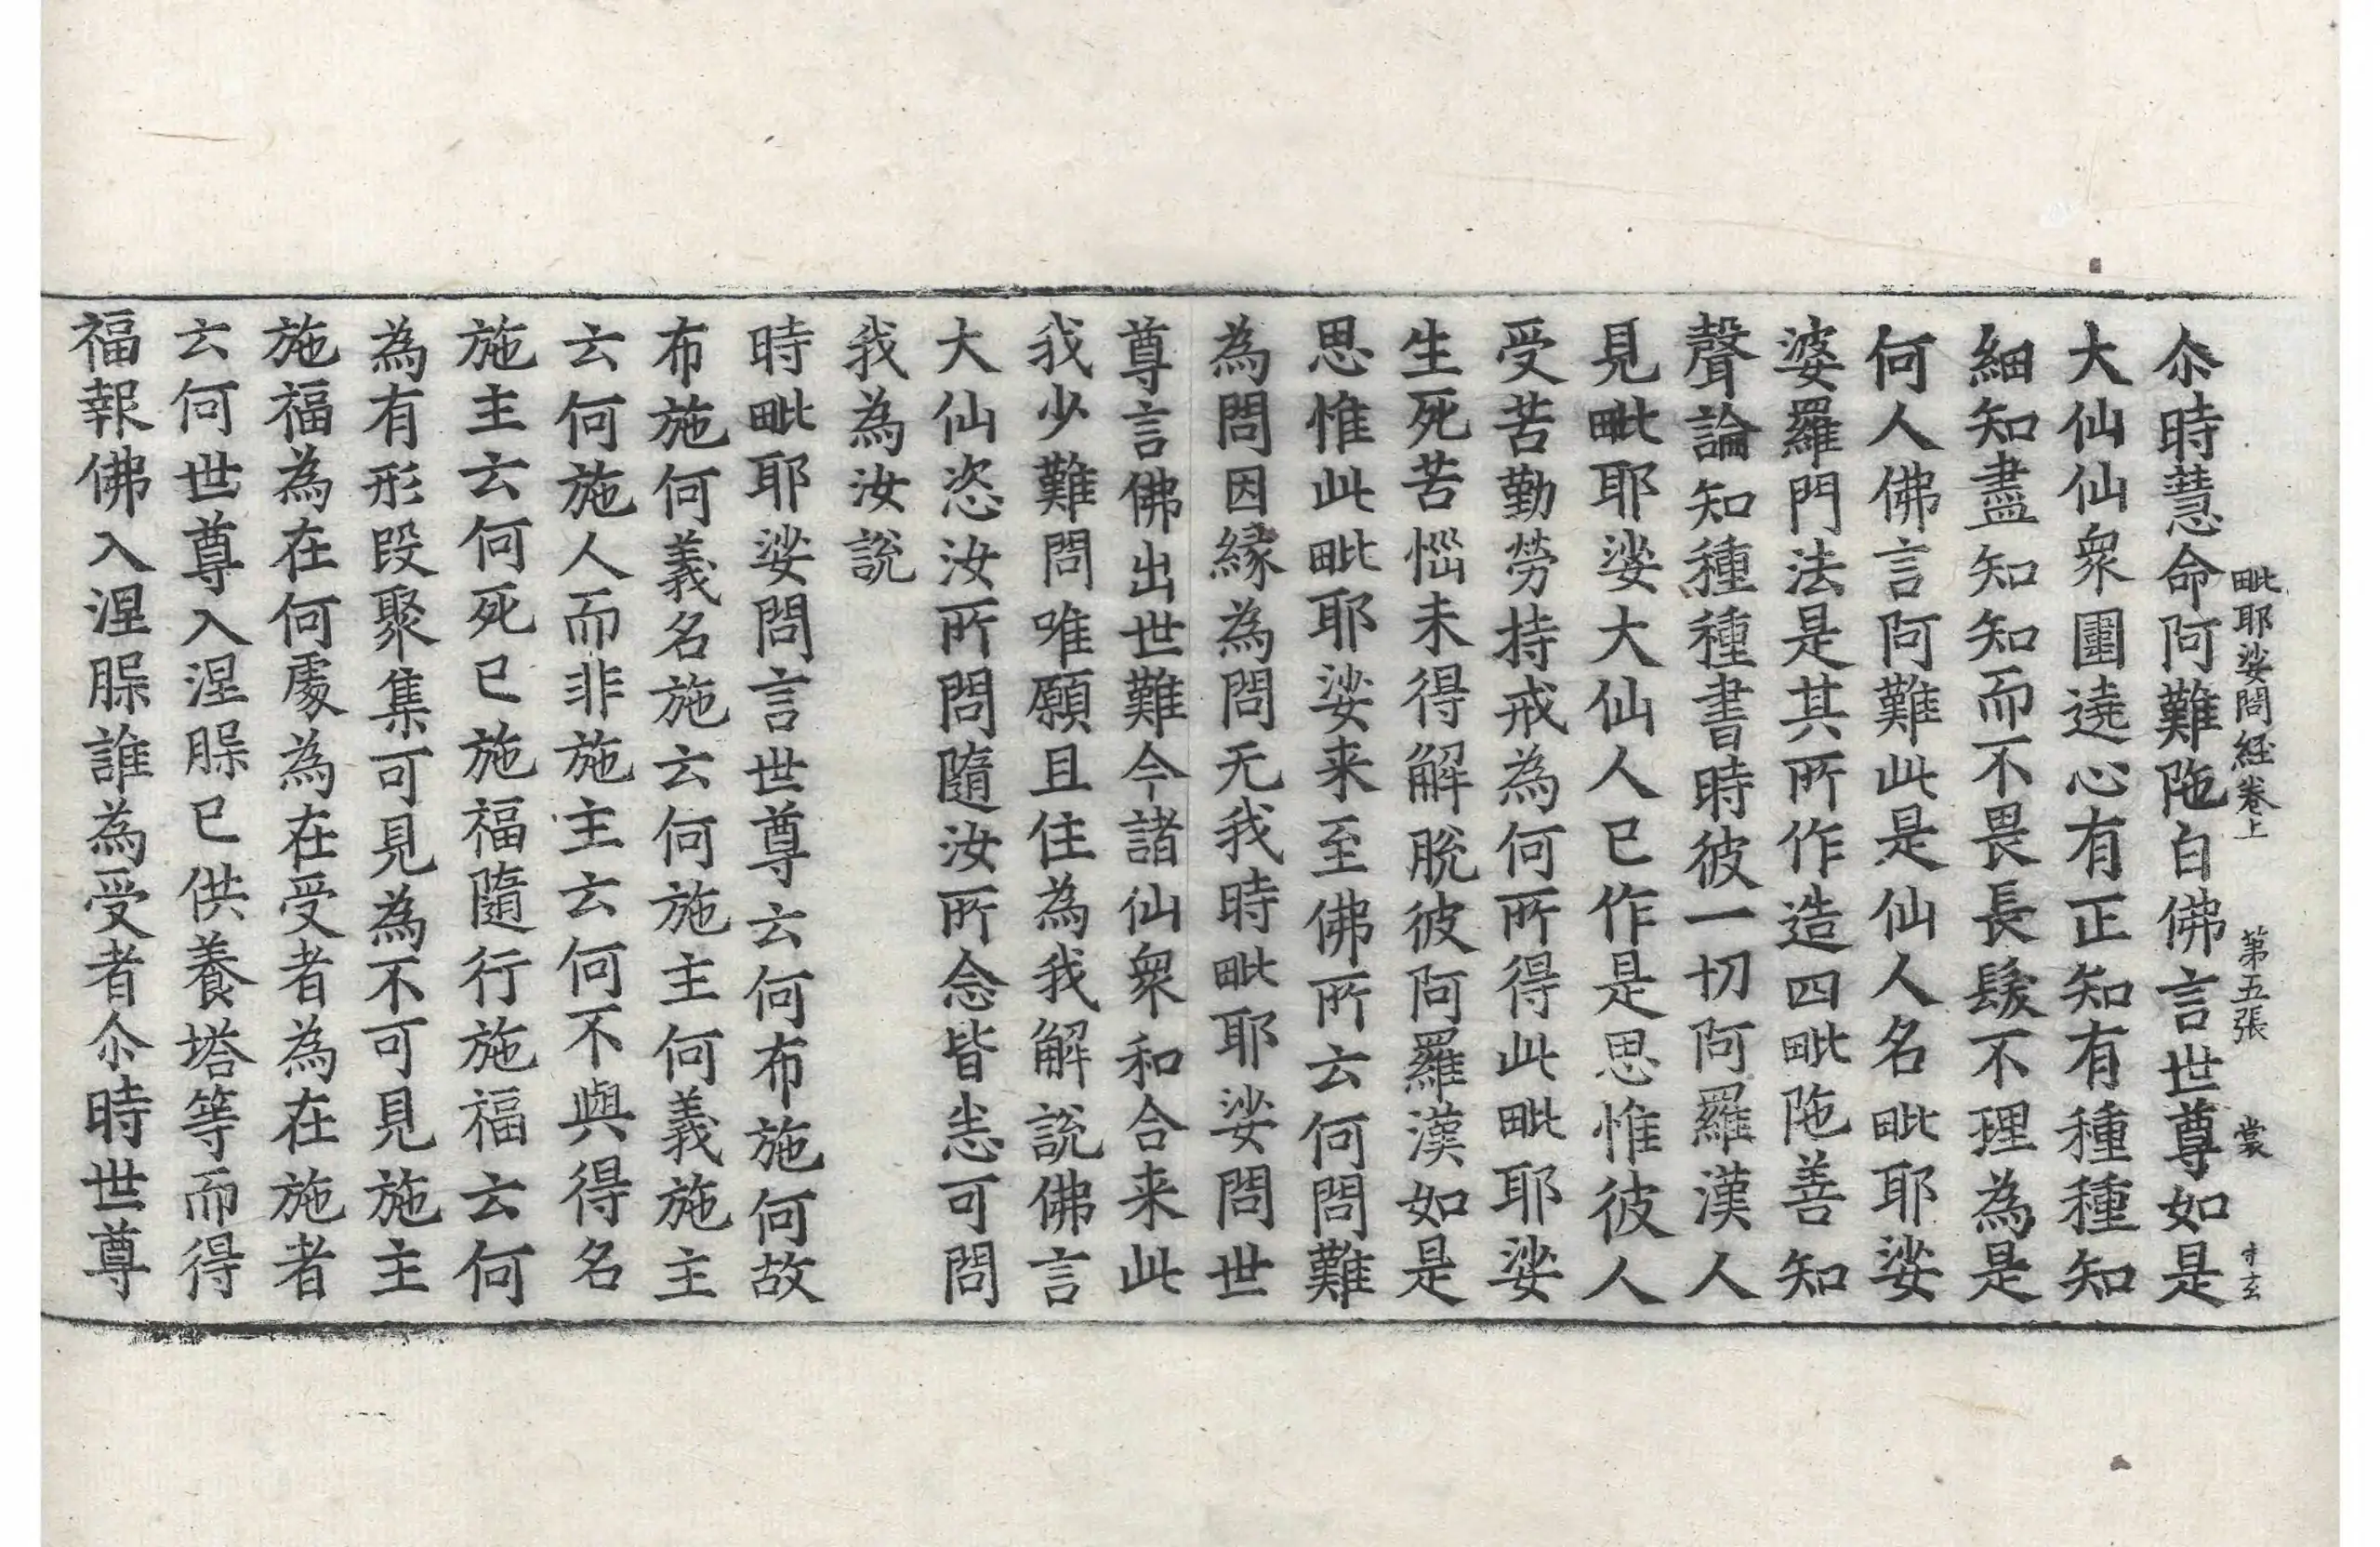 毗耶娑問經卷上 第五張 裳 才玄
尒時慧命阿難陁白佛言世尊如是
大仙仙衆圍遶心有正知有種種知
細知盡知知而不畏長髮不理為是
何人佛言阿難此是仙人名毗耶娑
婆羅門法是其所作造四毗陁善知
聲論知種種書時彼一切阿羅漢人
見毗耶娑大仙人已作是思惟彼人
受苦勤勞持戒為何所得此毗耶娑
生死苦惱未得解脫彼阿羅漢如是
思惟此毗耶娑来至佛所云何問難
為問因緣為問无我時毗耶娑問世
尊言佛出世難今諸仙衆和合来此
我少難問唯願且住為我解說佛言
大仙恣汝所問隨汝所念皆恙可問
我為汝說
時毗耶娑問言世尊云何布施何故
布施何義名施云何施主何義施主
云何施人而非施主云何不與得名
施主云何死已施福隨行施福云何
為有形段聚集可見為不可見施主
施福為在何處為在受者為在施者
云何世尊入涅䐈已供養塔等而得
福報佛入涅䐈誰為受者尒時世尊